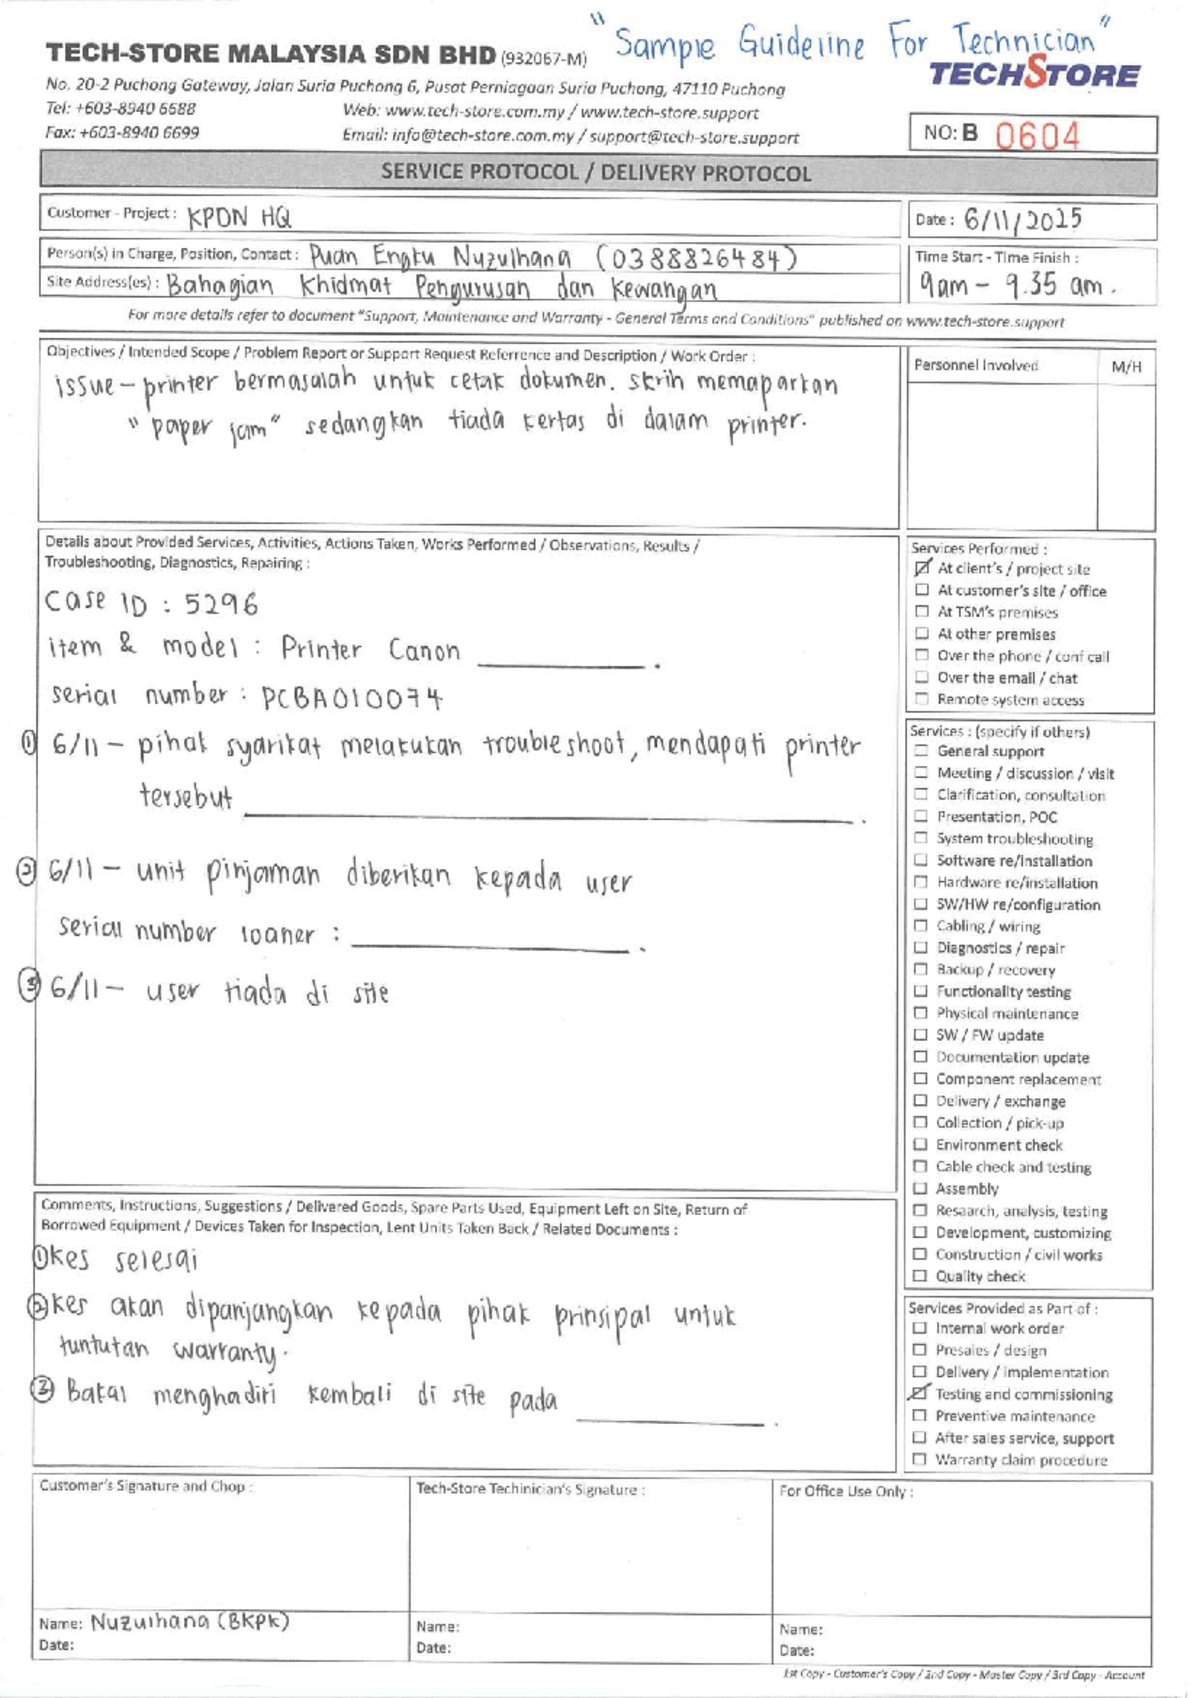 "Sample Guideline For Technician"
TECH-STORE MALAYSIA SDN BHD (932067-M)
TECHSTORE
No. 20-2 Puchong Gateway, Jalan Suria Puchong 6, Pusat Perniagaan Suria Puchong, 47110 Puchong
Tel: +603-8940 6688 Web: www.tech-store.com.my / www.tech-store.support
Fax: +603-8940 6699 Email: info@tech-store.com.my / support@tech-store.support
NO: B 0604
SERVICE PROTOCOL / DELIVERY PROTOCOL
Customer - Project : KPDN HQ
Date : 6/11/2025
Person(s) in Charge, Position, Contact : Puan Engku Nuzulhana (0388826484)
Site Address(es) : Bahagian Khidmat Pengurusan dan Kewangan
Time Start - Time Finish :
9am - 9.35 am.
For more details refer to document "Support, Maintenance and Warranty - General Terms and Conditions" published on www.tech-store.support
Objectives / Intended Scope / Problem Report or Support Request Referrence and Description / Work Order :
issue - printer bermasalah untuk cetak dokumen. skrin memaparkan
"paper jam" sedangkan tiada kertas di dalam printer.
Personnel Involved M/H
Details about Provided Services, Activities, Actions Taken, Works Performed / Observations, Results /
Troubleshooting, Diagnostics, Repairing :
Case ID : 5296
item & model : Printer Canon ________.
serial number : PCBA010074
① 6/11 - pihak syarikat melakukan troubleshoot, mendapati printer
tersebut ________.
② 6/11 - unit pinjaman diberikan kepada user
serial number loaner : ________.
③ 6/11 - user tiada di site
Services Performed :
☑ At client's / project site
☐ At customer's site / office
☐ At TSM's premises
☐ At other premises
☐ Over the phone / conf call
☐ Over the email / chat
☐ Remote system access
Services : (specify if others)
☐ General support
☐ Meeting / discussion / visit
☐ Clarification, consultation
☐ Presentation, POC
☐ System troubleshooting
☐ Software re/installation
☐ Hardware re/installation
☐ SW/HW re/configuration
☐ Cabling / wiring
☐ Diagnostics / repair
☐ Backup / recovery
☐ Functionality testing
☐ Physical maintenance
☐ SW / FW update
☐ Documentation update
☐ Component replacement
☐ Delivery / exchange
☐ Collection / pick-up
☐ Environment check
☐ Cable check and testing
☐ Assembly
☐ Research, analysis, testing
☐ Development, customizing
☐ Construction / civil works
☐ Quality check
Comments, Instructions, Suggestions / Delivered Goods, Spare Parts Used, Equipment Left on Site, Return of
Borrowed Equipment / Devices Taken for Inspection, Lent Units Taken Back / Related Documents :
① Kes selesai
② Kes akan dipanjangkan kepada pihak prinsipal untuk
tuntutan warranty.
③ Bakal menghadiri kembali di site pada ________.
Services Provided as Part of :
☐ Internal work order
☐ Presales / design
☐ Delivery / implementation
☑ Testing and commissioning
☐ Preventive maintenance
☐ After sales service, support
☐ Warranty claim procedure
Customer's Signature and Chop :
Name: Nuzulhana (BKPK)
Date:
Tech-Store Techinician's Signature :
Name:
Date:
For Office Use Only :
Name:
Date:
1st Copy - Customer's Copy / 2nd Copy - Master Copy / 3rd Copy - Account